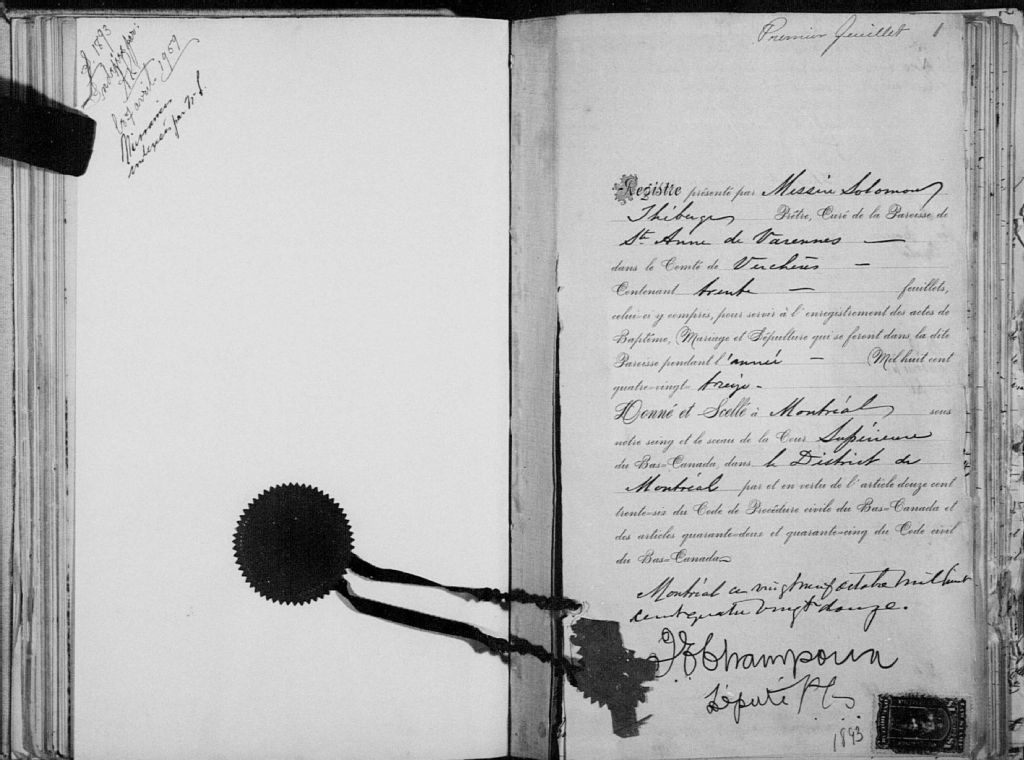 1893
avril 1959
par N. S.
Premier feuillet 1
Registre présenté par Messire Solomon
Théberge Prêtre, Curé de la Paroisse de
St. Anne de Varennes —
dans le Comté de Verchères —
Contenant trente — feuillets,
celui-ci y compris, pour servir à l'enregistrement des actes de
Baptême, Mariage et Sépulture qui se feront dans la dite
Paroisse pendant l'année — Mil huit cent
quatre-vingt treize -
Donné et Scellé à Montréal sous
notre seing et le sceau de la Cour Supérieure
du Bas-Canada, dans le District de
Montréal par et en vertu de l'article douze cent
trente-six du Code de Procédure civile du Bas-Canada et
des articles quarante-deux et quarante-cinq du Code civil
du Bas-Canada.
Montréal ce vingt neuf octobre mil huit
cent quatre vingt douze.
Champoux
Député
1893